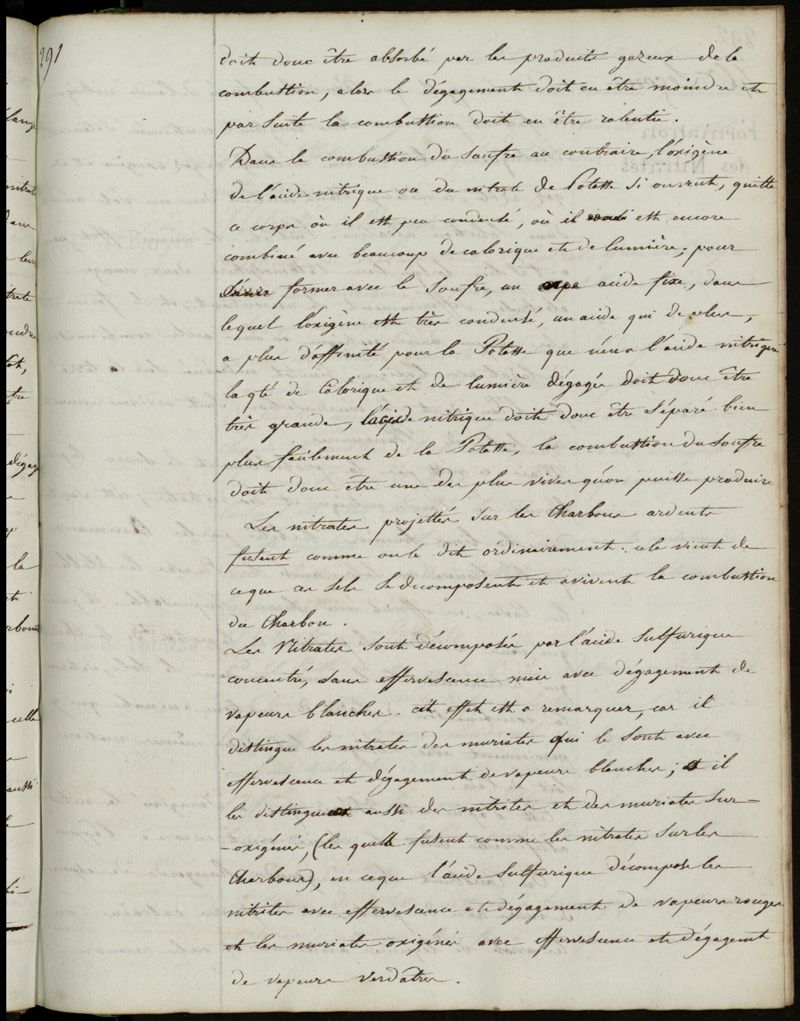 291
doit donc être absorbé par les produits gazeux de la
combustion, alors le dégagement doit en être moindre et
par suite la combustion doit en être ralentie.
Dans la combustion du soufre au contraire, l'oxigène
de l'acide nitrique ou du nitrate de Potasse si on veut, quitte
ce corps où il est peu condensé, où il est encore
combiné avec beaucoup de calorique et de lumière, pour
former avec le soufre, un acide fixe, dans
lequel l'oxigène est très condensé, un acide qui de plus,
a plus d'affinité pour la Potasse que n'en a l'acide nitrique
la qté de Calorique et de lumière dégagée doit donc être
très grande, l'acide nitrique doit donc être séparé bien
plus facilement de la Potasse, la combustion du soufre
doit donc être une des plus vives qu'on puisse produire
Les nitrates projettés sur les Charbons ardents
fusent comme on le dit ordinairement : cela vient de
ce que ces sels se decomposent et avivent la combustion
du Charbon.
Les Nitrates sont décomposés par l'acide Sulfurique
concentré, sans effervescence mais avec dégagement de
vapeurs blanches. cet effet est a remarquer, car il
distingue les nitrates des muriates qui le sont avec
effervescence et dégagement de vapeurs blanches ; et il
les distingue aussi des nitrites et des muriates sur-
-oxigénés, (les quels fusent comme les nitrates sur les
Charbons), en ce que l'acide sulfurique décompose les
nitrites avec effervescence et dégagement de vapeurs rouges
et les muriates oxigénés avec effervescence et dégagemt
de vapeurs verdâtres.